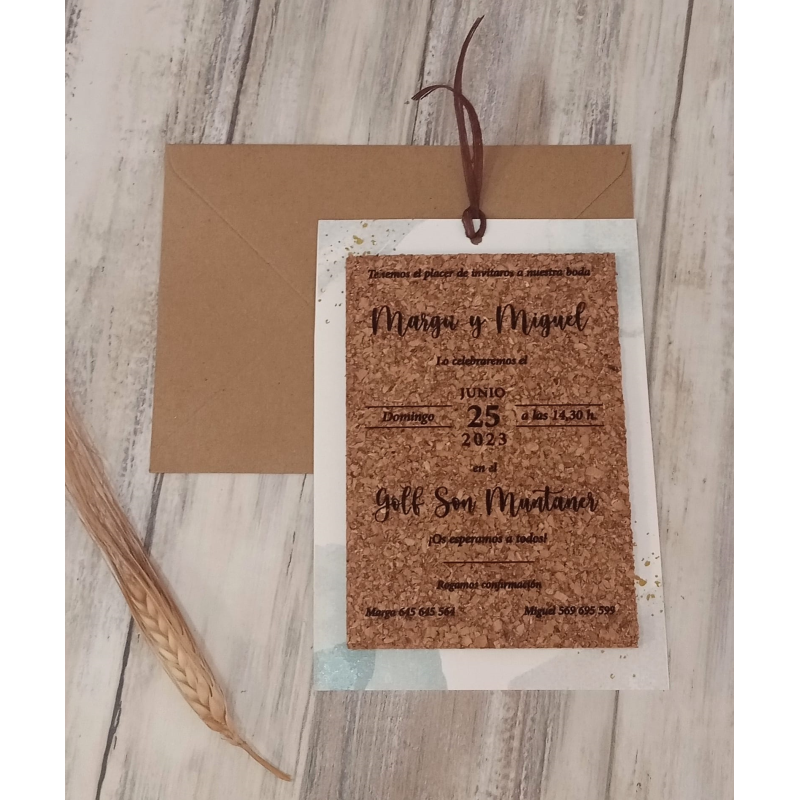 Tenemos el placer de invitaros a nuestra boda
Margu y Miguel
Lo celebraremos el
JUNIO
Domingo 25 a las 14,30 h.
2023
en el
Golf Son Muntaner
¡Os esperamos a todos!
Rogamos confirmación
Marga 645 645 564 Miguel 569 695 599